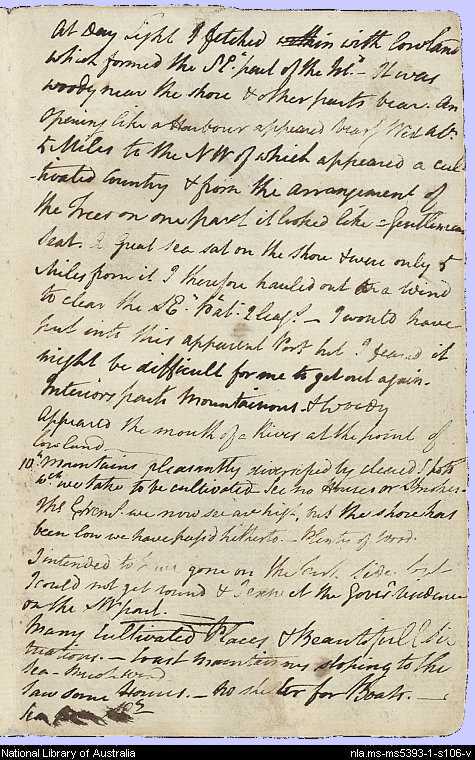 At Day light I fetched within with low land
which formed the SE. part of the Isd. - It was
woody near the shore & other parts bear. An
opening like a Harbour appeared bearg West abt.
5 Miles to the NW of which appeared a cul
-tivated Country & from the arrangement of
the Trees on one part it looked like a Gentlemans
Seat. A Great sea sat on the shore & were only 5
Miles from it I therefore hauled out a wind
to clear the SE. 2 leags. - I would have
put into this apparent Port but I feared it
might be difficult for me to get out again.
Interior parts Mountainous & Woody
appeared the mouth of a River at the point of
low land
10h Mountains pleasantly diversifyed by cleared spots
wch we take to be cultivated see no Houses or Smokes.
The we now see are high, but the shore has
been low we have passd hitherto. - Plenty of wood.
I intended to have gone on the side but
I could not get round & the Govrs. residence
on the NW part.
Many Cultivated Places & Beautiful Si
tuations. - Coast mountainous sloping to the
Sea - Much wood
Saw some Houses. - No shelter for Boats. -
Sea
National Library of Australia
nla.ms-ms5393-1-s106-v